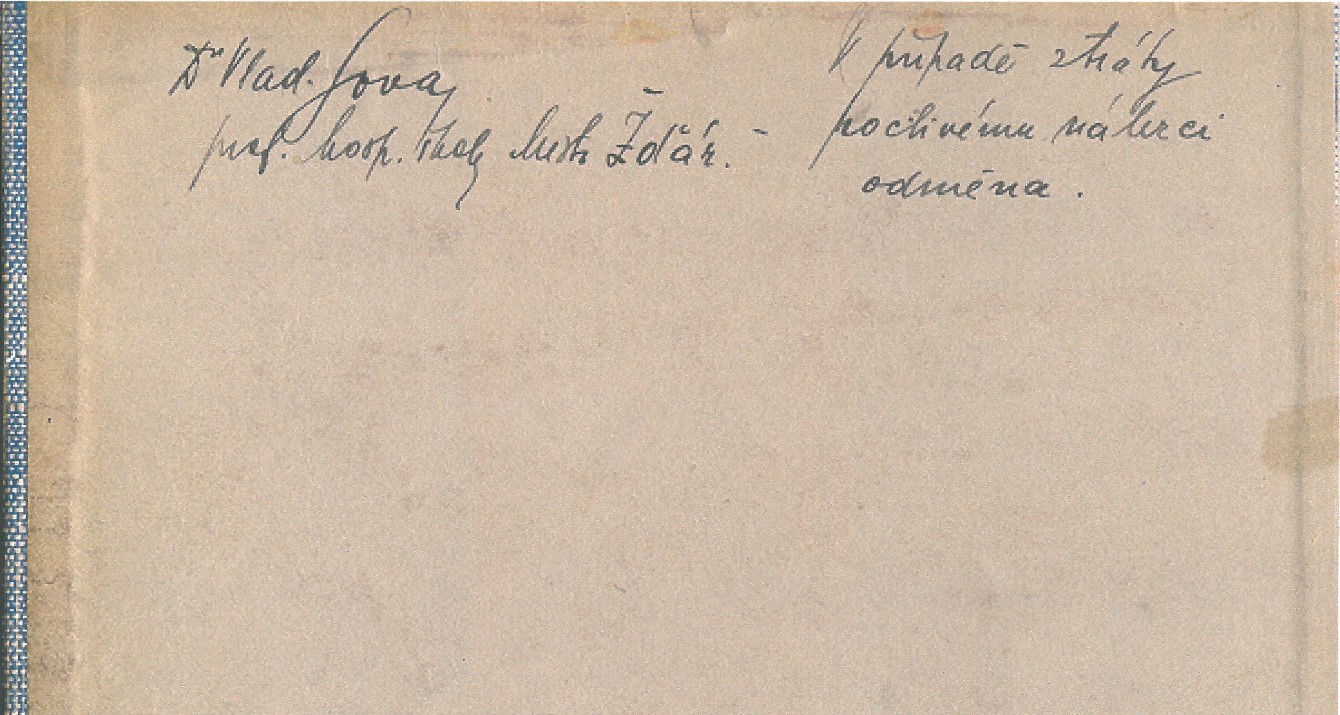 Dr Vlad. Sova,
prof. hosp. školy Měst. Žďár. -
V případě ztráty
poctivému nálezci
odměna.